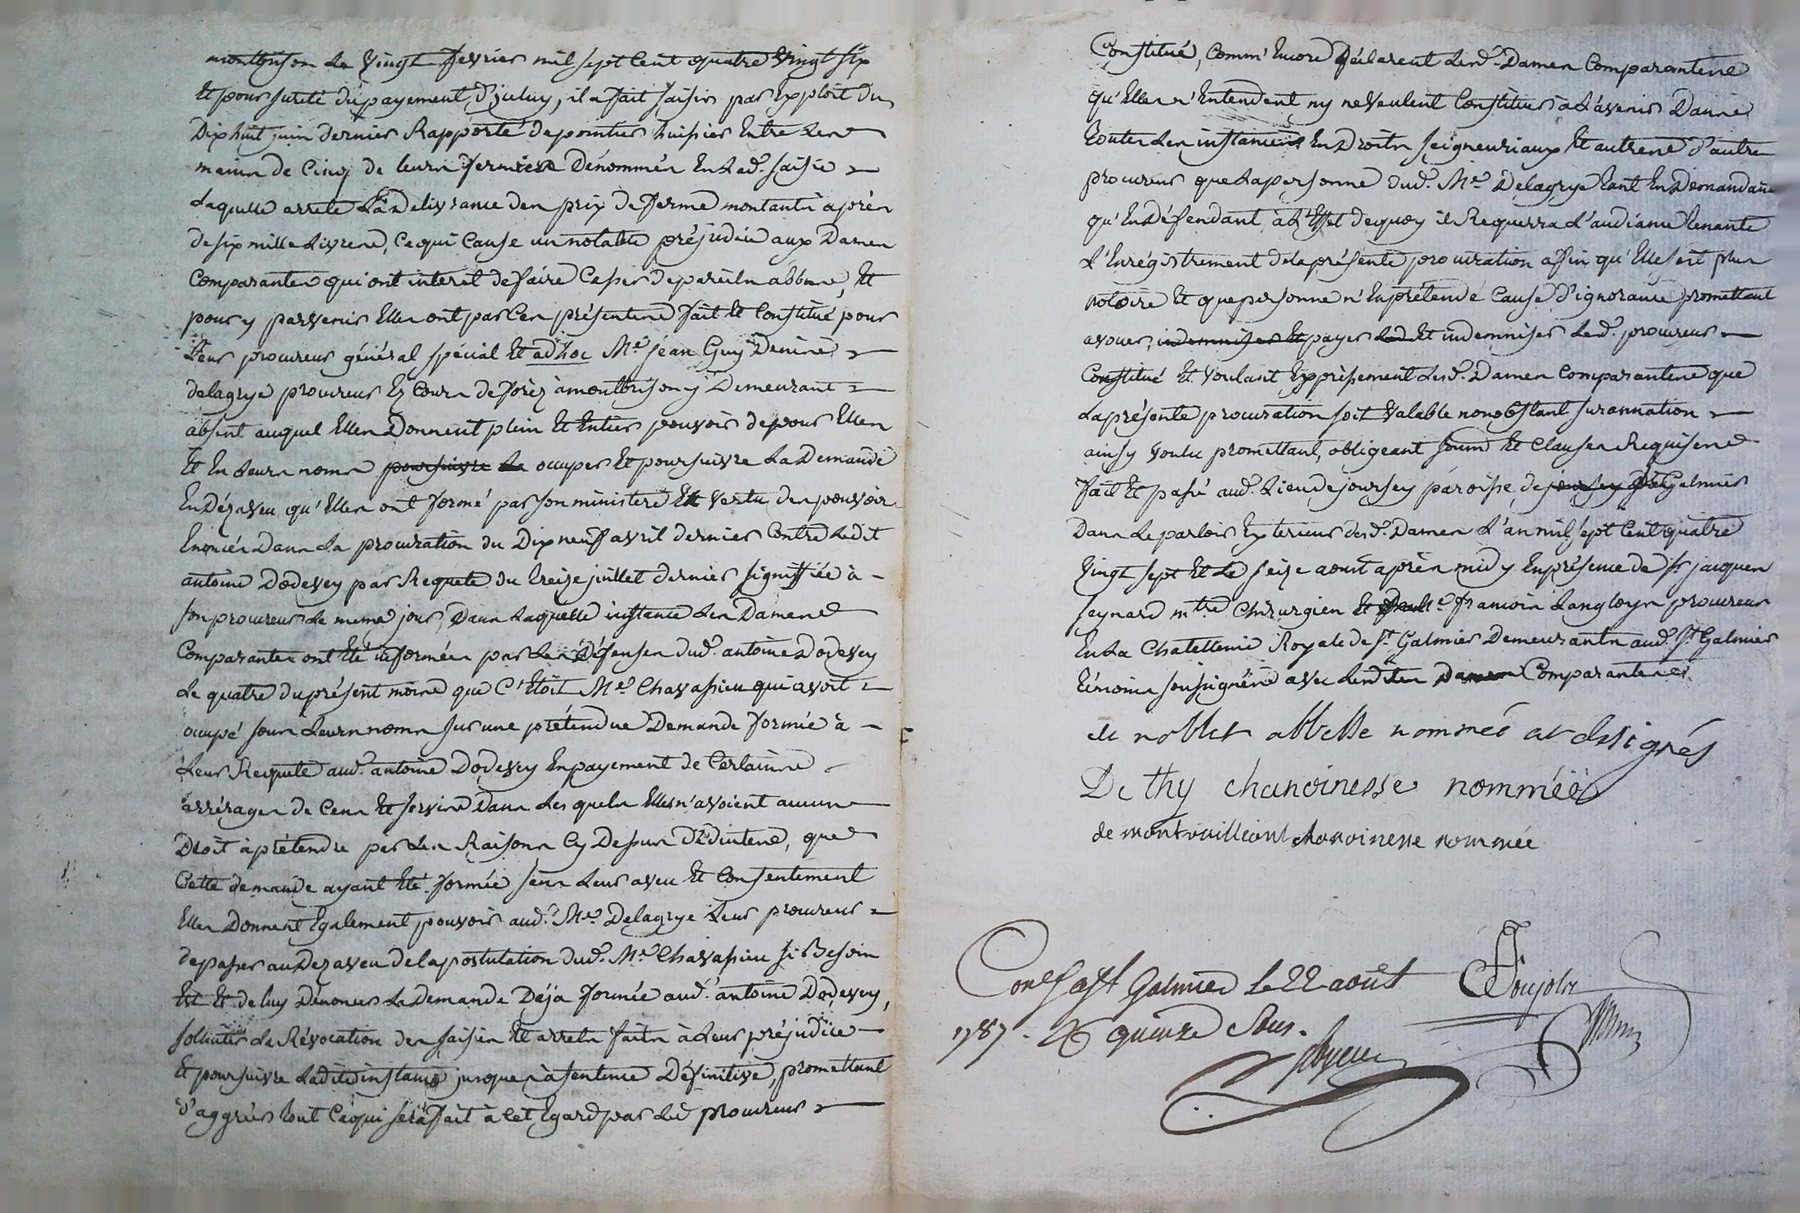 montbrison le vingt fevrier mil sept cent quatre vingt six
Et pour sureté du payement d'iceluy, il a fait saisir par Exploit du
Dix huit juin dernier Rapporté depointus huissier Entre les
mains de Cinq de leurs fermiers Dénommés En lad. saisie
Laquelle arrete La Delivrance des prix de ferme montants après
de six mille Livres, Ce qui Cause un notable préjudice aux Dames
Comparantes qui ont interet de faire Casser de pareils abbus, Et
pour y parvenir Elles ont par Ces présentes fait Et Constitué pour
Leur procureur général spécial Et ad hoc Me jean Guy Denis
delagrye procureur Es Cours de forez à montbrison y Demeurant
absent auquel Elles Donnent plein Et Entier pouvoir de pour Elles
Et En Leurs noms poursuivre La ocuper Et poursuivre La Demande
En Dézaveu qu'Elles ont formé par son ministere En vertu des pouvoirs
Enoncés Dans La procuration du Dix neuf avril dernier Contre Ledit
antoine Dodevey par Requete du treize juillet dernier signiffiée à
son procureur Le meme jour, Dans Laquelle instance Les Dames
Comparantes ont Eté informées par Les Défenses dud. antoine Dodevey
Le quatre du présent mois que C'Etoit Me Chavassieu qui avoit
ocupé sous Leurs noms sur une prétendue Demande formée à
Leur Requete aud. antoine Dodevey En payement de Certains
arrérages de Cens Et servis Dans Les quels Elles n'avoient aucun
Droit à prétendre par Les Raisons Cy Dessus Déduites, que
Cette demande ayant Eté formée sans Leur aveu Et Consentement
Elles Donnent Egalement pouvoir aud. Me Delagrye Leur procureur
de passer au Dezaveu de la postulation dud. Me Chavassieu si Besoin
Est Et de luy Dénoncer La Demande Déja formée aud. antoine Dodevey,
solliciter La Révocation des saisies Et arrets faits à Leur préjudice
Et poursuivre Ladite instance jusques à sentence Définitive, promettant
d'aggréer tout Ce qui sera fait à Cet Egard par Led procureur
Constitué, Comm' Encore Déclarent Lesd. Dames Comparantes
qu'Elles n'Entendent ny ne Veulent Constituer à L'avenir Dans
toutes Les instances En Droits seigneuriaux Et autres d'autre
procureur que La personne dud. Me Delagrye tant En Demandant
qu'En Défendant, à L'Effet de quoy il Requerra L'audiance tenante
L'Enrégistrement de la présente procuration affin qu'Elle soit plus
notoire Et que personne n'En prétende Cause d'ignorance promettant
avouer, indemniser Et payer Led Et indemniser Led. procureur
Constitué Et voulant Expressement Lesd. Dames Comparantes que
La présente procuration soit valable nonobstant surannation
ainsy voulu promettant, obligeant soumis Et Clauses Requises
fait Et passé aud. Lieu de joursey paroisse de joursey St Galmier
Dans Le parloir Exterieur desd. Dames L'an mil sept Cent quatre
vingt sept Et Le seize aoust après midy En présence de sr jacques
seynard mtre Chirurgien Et Me francois Langloys procureur
En La Chatellenie Royale de St Galmier Demeurants aud. St Galmier
témoins soussignés avec Lesdites Dames Comparantes
de nobles abbesse nommée
De thy chanoinesse nommée
de montrouilleant chanoinesse nommée
Conllé a St Galmier le 22 août
1787. R quinze Sous.